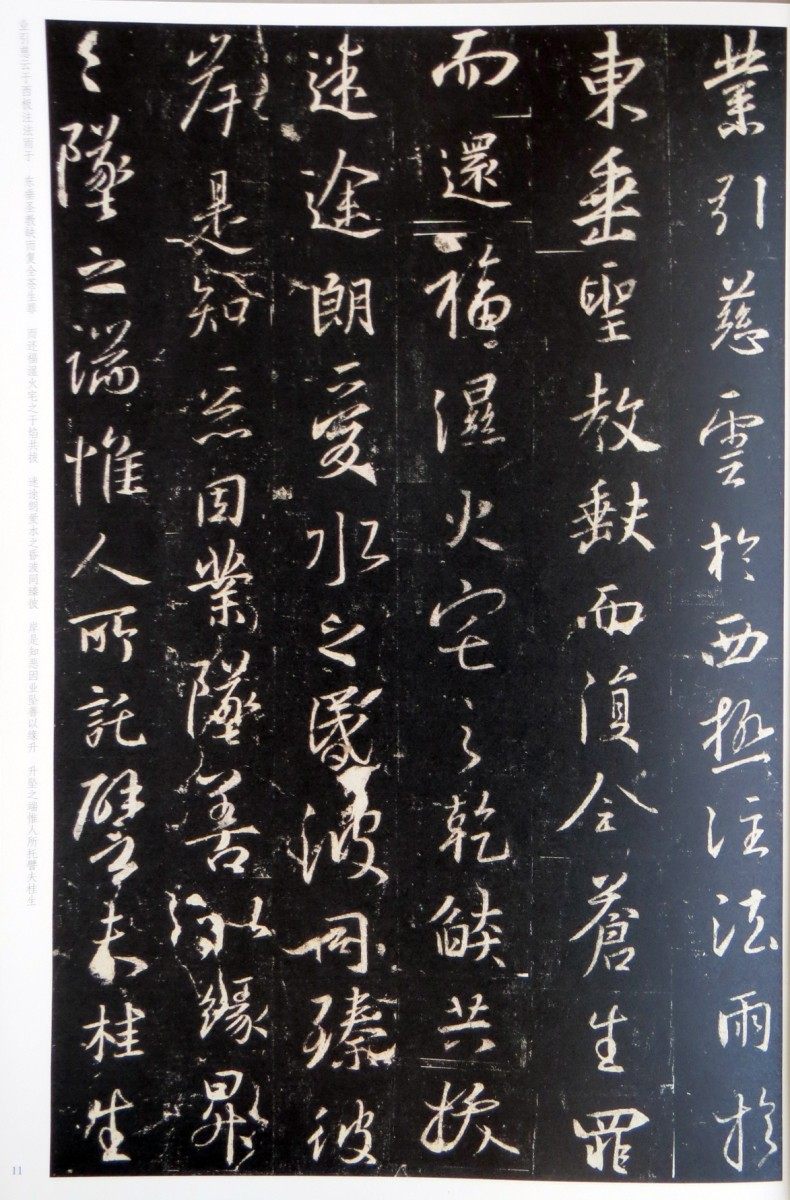 業引慈雲於西極注法雨於
東垂聖教缺而復全蒼生罪
而還福濕火宅之乾焰共拔
迷途朗愛水之昏波同臻彼
岸是知惡因業墜善以緣昇
々墜之端惟人所託譬夫桂生
业引慈云于西极注法雨于　东垂圣教缺而复全苍生罪　而还福湿火宅之干焰共拔　迷途朗爱水之昏波同臻彼　岸是知恶因业坠善以缘升　升坠之端惟人所托譬夫桂生
11